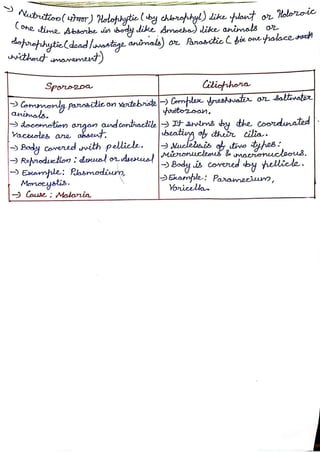 -> Nutrition (पोषण) Holophytic (by chlorophyl) like plant or Holozoic
(one time Absorbe in body like Amoeba) like animals or
Saprophytic (dead/wastage animals) or Parasitic (fix one palace
without movement)
Sporozoa
-> Commonly parasitic on vertebrate
animals.
-> Locomotion organ and contractile
Vacuoles are absent.
-> Body covered with pellicle.
-> Reproduction: Sexual or Asexual
-> Example: Plasmodium,
Monocystis.
-> Cause: Malaria
Ciliophora
-> Complex freshwater or saltwater
protozoan.
-> It swims by the coordunated
beating of their cilia.
-> Nucleus is of two types:
Micronucleous & macronucleous.
-> Body is covered by pellicle.
-> Example: Paramecium,
Voricella.